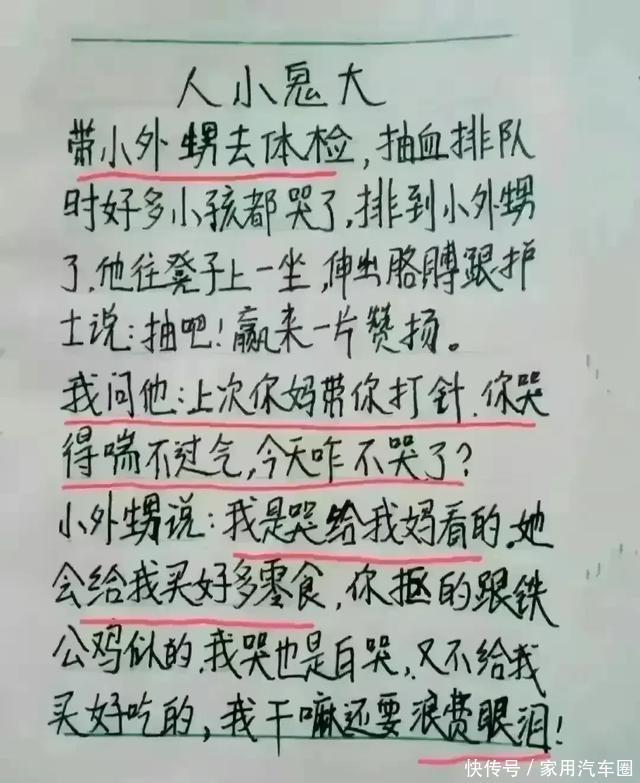 人小鬼大
带小外甥去体检，抽血排队
时好多小孩都哭了，排到小外甥
了，他往凳子上一坐，伸出胳膊跟护
士说：抽吧！赢来一片赞扬。
我问他：上次你妈带你打针，你哭
得喘不过气，今天咋不哭了？
小外甥说：我是哭给我妈看的，她
会给我买好多零食，你抠的跟铁
公鸡似的，我哭也是白哭，又不给我
买好吃的，我干嘛还要浪费眼泪！
快传号/家用汽车圈